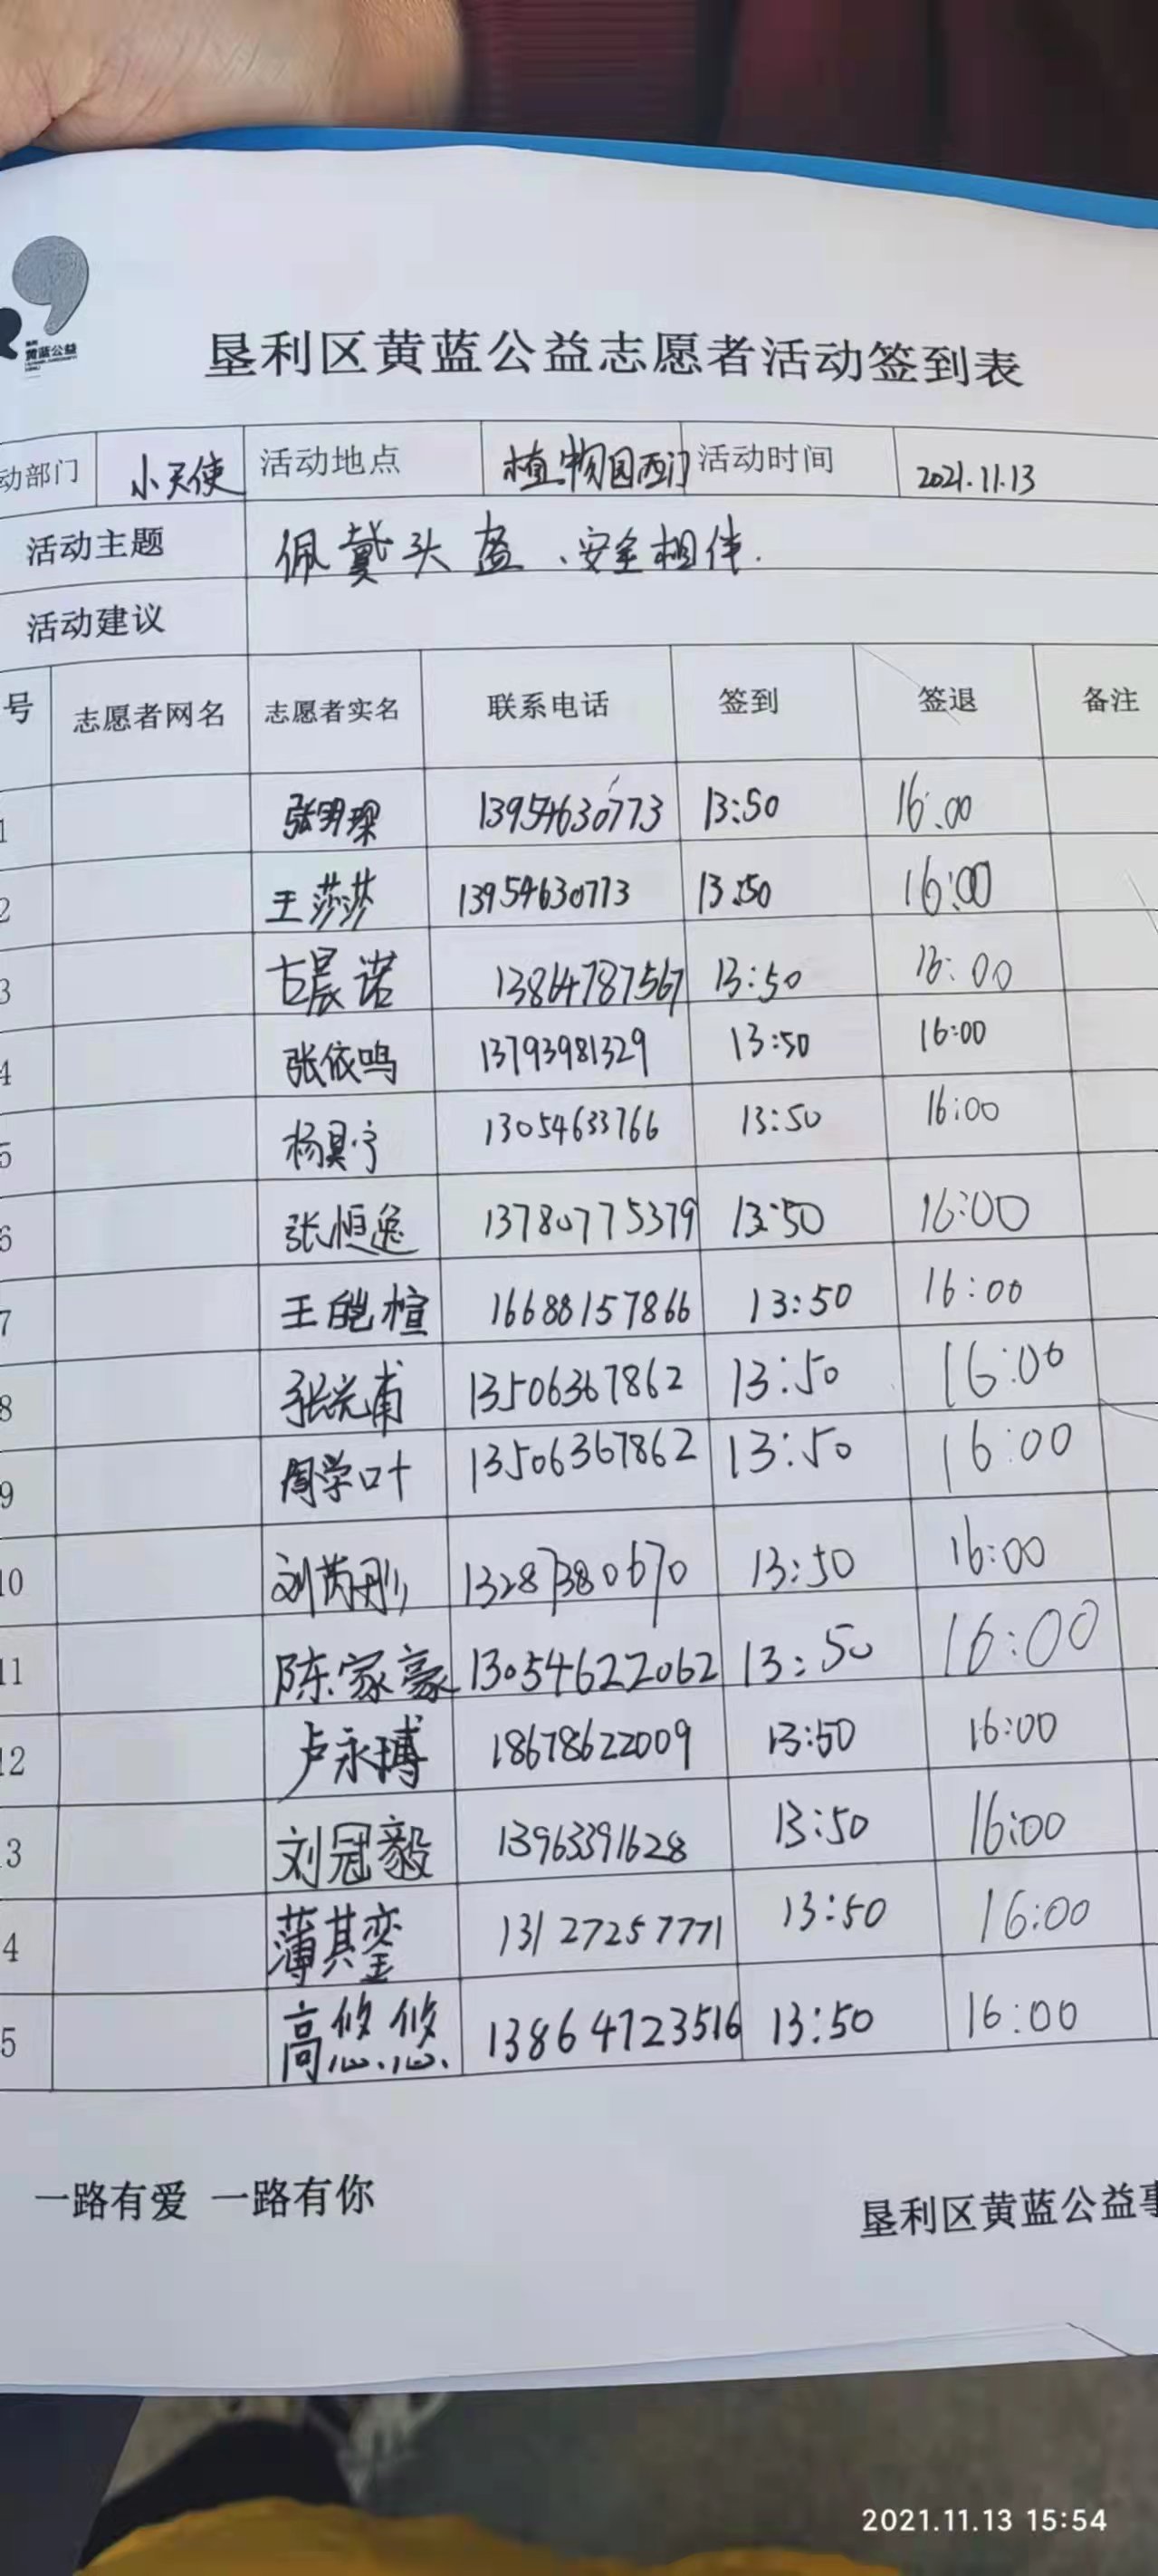 黄蓝公益
垦利区黄蓝公益志愿者活动签到表
动部门 小天使 活动地点 植物园西门 活动时间 2021.11.13
活动主题 佩戴头盔、安全相伴.
活动建议
号 志愿者网名 志愿者实名 联系电话 签到 签退 备注
1 13954630773 13:50 16:00
2 王莎莎 13954630773 13:50 16:00
3 古晨诺 13864787567 13:50 16:00
4 张依鸣 13793981329 13:50 16:00
5 杨昊宁 13054633766 13:50 16:00
6 张恒逸 13780775379 13:50 16:00
7 王皑楦 16688157866 13:50 16:00
8 张光甫 13506367862 13:50 16:00
9 周学叶 13506367862 13:50 16:00
10 刘芮彤 13287380670 13:50 16:00
11 陈家豪 13054622062 13:50 16:00
12 卢永博 18678622009 13:50 16:00
3 刘冠毅 13963391628 13:50 16:00
4 薄其銮 13127257771 13:50 16:00
5 高悠悠 13864723516 13:50 16:00
一路有爱 一路有你
垦利区黄蓝公益事
2021.11.13 15:54